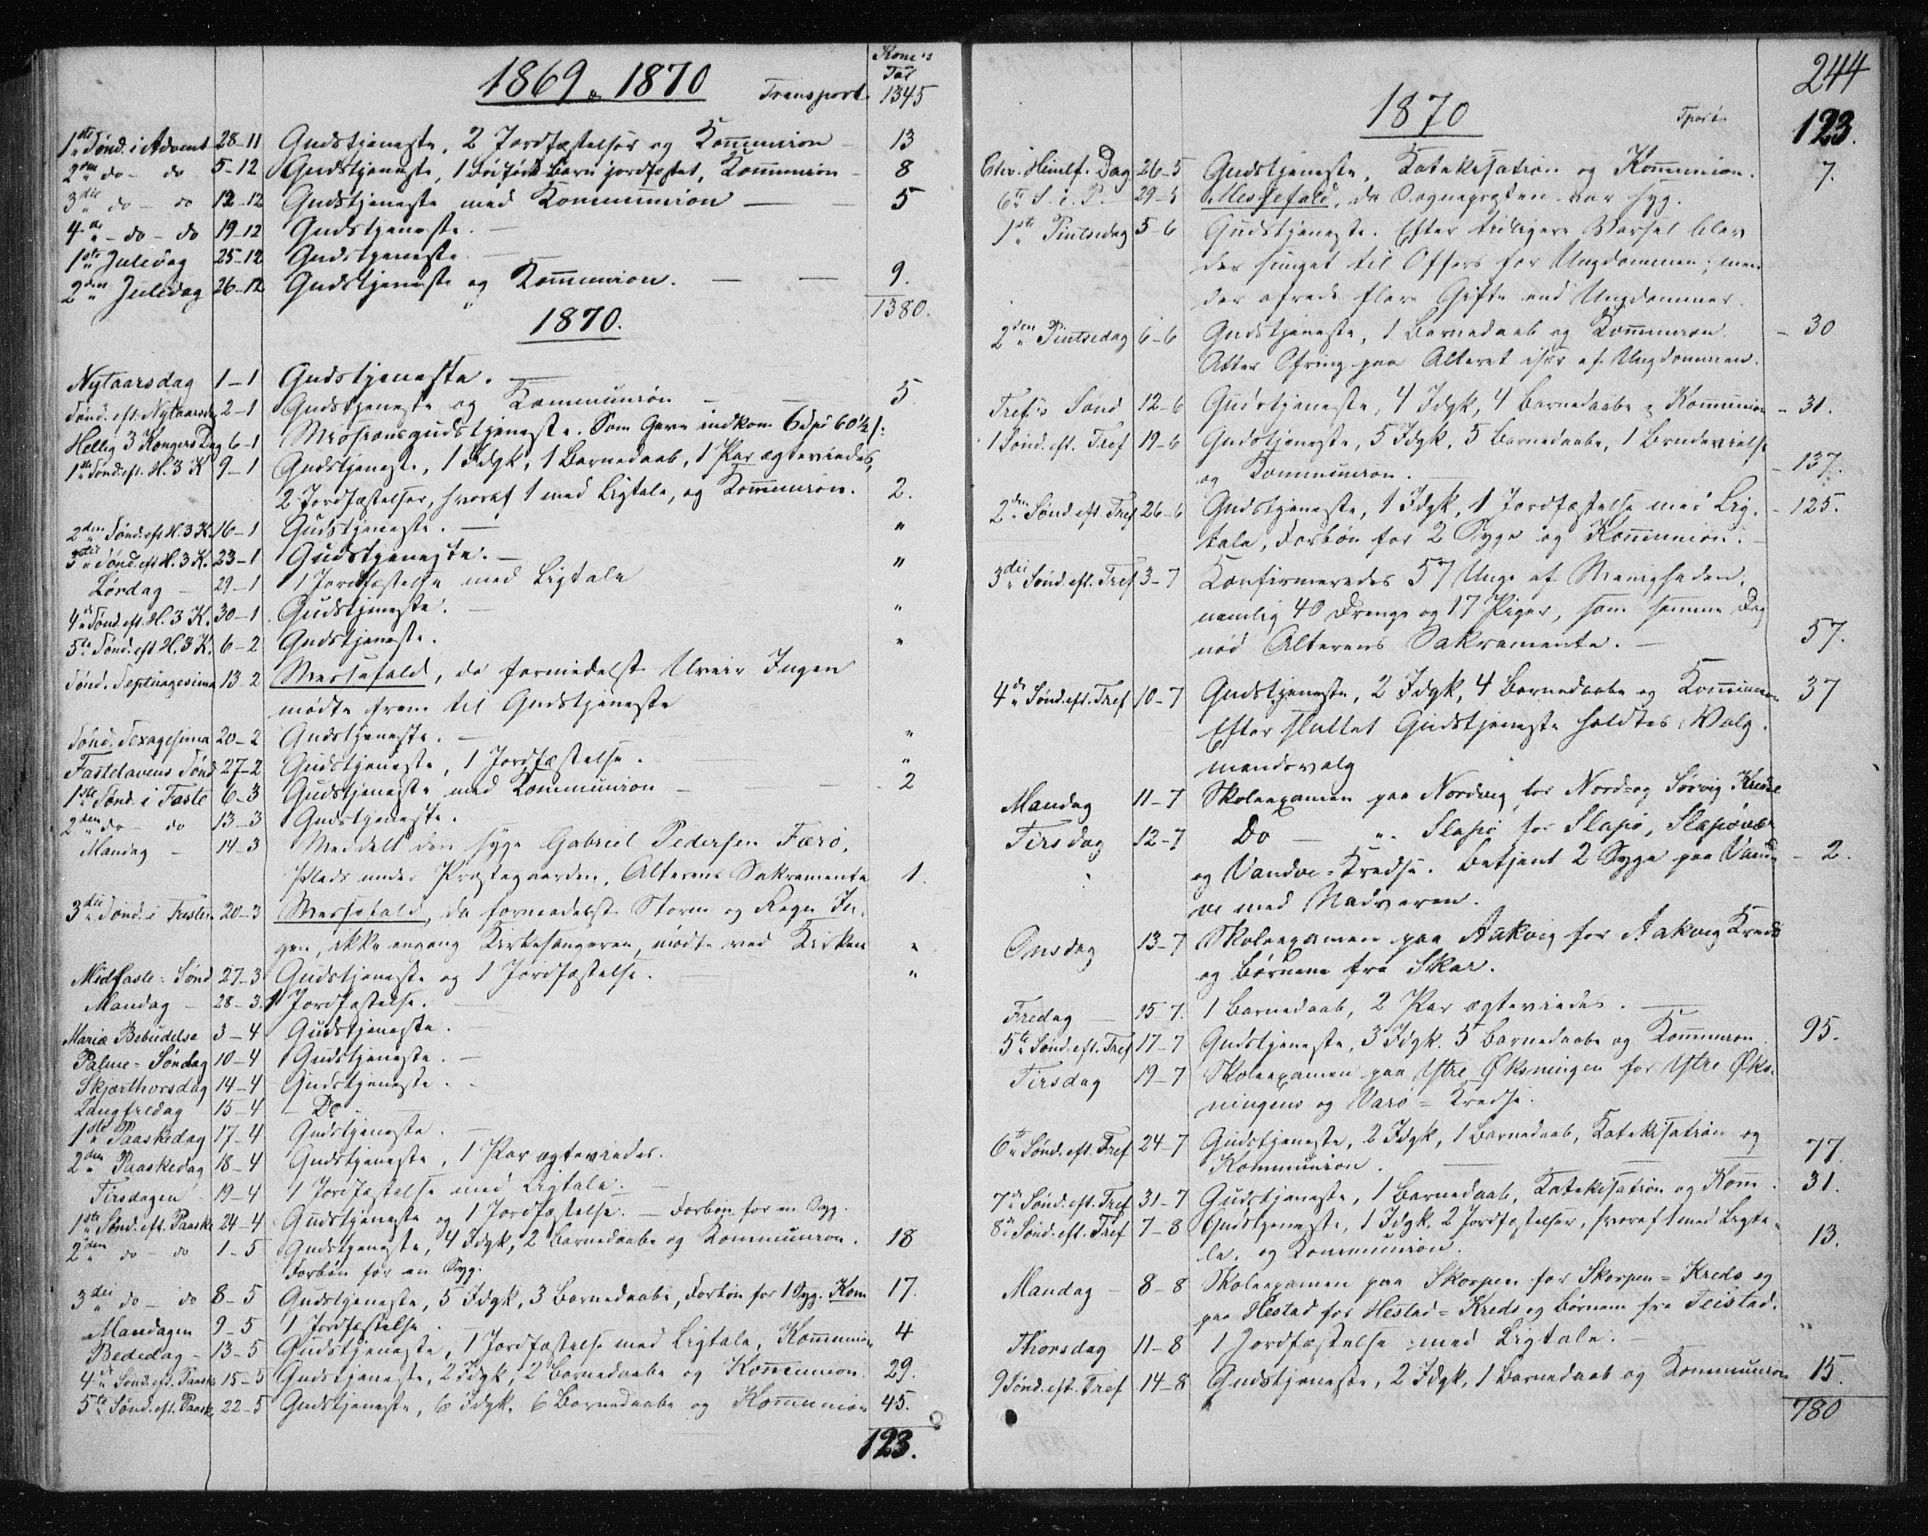 1869 „ 1870
Kom's
Tal
Transport 1345
1ste Sønd. i Advent 28-11 Gudstjeneste, 2 Jordfæstelser og Kommunion 13
2den do - do 5-12 Gudstjeneste, 1 Barn jordfæstet, Kommunion - 8
3die do - do 12-12 Gudstjeneste med Kommunion — — 5
4de - do - do 19-12 Gudstjeneste. —
1ste Juledag 25-12 Gudstjeneste
2den Juledag 26-12 Gudstjeneste og Kommunion. — — 9.
1380.
1870.
Nytaarsdag 1-1 Gudstjeneste. —
Sønd. eft. Nytaarsdag 2-1 Gudstjeneste og Kommunion — — 5
Hellig 3 Kongers Dag 6-1 Missionsgudstjeneste. Som Gave indkom 6 Spd 60½ s:
1ste Sønd. eft. H. 3 K 9-1 Gudstjeneste, 1 Idgk, 1 Barnedaab, 1 Par ægteviedes,
2 Jordfæstelser, hvoraf 1 med Ligtale, og Kommunion. 2.
2den Sønd. eft H. 3 K. 16-1 Gudstjeneste. — "
3die Sønd. eft H. 3 K. 23-1 Gudstjeneste. — "
Lørdag - 29-1 1 Jordfæstelse med Ligtale
4de Sønd. eft. H. 3 K. 30-1 Gudstjeneste. — "
5te Sønd. eft H. 3 K. 6-2 Gudstjeneste. "
Sønd. Septuagesima 13-2 Messefald, da formedelst Uveir Ingen
mødte frem til Gudstjeneste
Sønd. Sexagesima 20-2 Gudstjeneste. — "
Fastelavens Sønd 27-2 Gudstjeneste, 1 Jordfæstelse. "
1ste Sønd. i Faste 6-3 Gudstjeneste med Kommunion — — 2
2den do - do 13-3 Gudstjeneste.
Mandag - 14-3 Meddelt den syge Gabriel Pedersen Færø,
Plads under Præstegaarden, Alterens Sakramente 1.
3die Sønd. i Fasten 20-3 Messefald, da formedelst Storm og Regn In-
gen, ikke engang Kirkesangeren, mødte ved Kirken "
Midfaste-Sønd 27-3 Gudstjeneste og 1 Jordfæstelse. "
Mandag - 28-3. 1 Jordfæstelse. —
Mariæ Bebudelse 3-4 Gudstjeneste. —
Palme-Søndag 10-4 Gudstjeneste. —
Skjærthorsdag 14-4 Gudstjeneste. -
Langfredag 15-4 - Do -
1ste Paaskedag 17-4 Gudstjeneste. —
2den Paaskedag 18-4 Gudstjeneste, 1 Par ægteviedes.
Tirsdagen 19-4 1 Jordfæstelse med Ligtale. —
1ste Sønd. eft. Paaske 24-4 Gudstjeneste og 1 Jordfæstelse. — Forbøn for en Syg.
2den do - do 1-5 Gudstjeneste, 4 Idgk, 2 Barnedaabe og Kommunion. 18
Forbøn for en Syg.
3die do - do 8-5 Gudstjeneste, 5 Idgk, 3 Barnedaabe, Forbøn for 1 Syg. Kom 17.
Mandagen 9-5 1 Jordfæstelse. —
Bededag - 13-5 Gudstjeneste, 1 Jordfæstelse med Ligtale, Kommunion 4
4de Sønd. eft. Paaske 15-5 Gudstjeneste, 2 Idgk, 2 Barnedaabe og Kommunion. 29.
5te Sønd. eft. Paaske 22-5 Gudstjeneste, 6 Idgk. 6 Barnedaabe og Kommunion 45.
123.
244
1870
Tport. 123.
Chr. Himlf. Dag 26-5 Gudstjeneste, Katekisation og Kommunion. 7.
6te S. e. P. 29-5 Messefald, da Sognepræsten var syg.
1ste Pintsedag 5-6 Gudstjeneste. Efter tidligere Varsel blev
der sunget til Offers for Ungdommen; men
der ofrede flere Gifte end Ungdommer.
2den Pintsedag 6-6 Gudstjeneste, 1 Barnedaab og Kommunion. - 30
Atter Ofring paa Alteret især af Ungdommen.
Tref's Sønd 12-6 Gudstjeneste, 4 Idgk, 4 Barnedaabe & Kommunion - 31.
1 Sønd. eft. Tref 19-6 Gudstjeneste, 5 Idgk. 5 Barnedaabe, 1 Brudevielse
og Kommunion. - 137.
2den Sønd eft. Tref 26-6 Gudstjeneste, 1 Idgk, 1 Jordfæstelse med Lig- - 125.
tale, Forbøn for 2 Syge og Kommunion. -
3die Sønd. eft. Tref 3-7 Konfirmeredes 57 Unge af Menigheden,
nemlig 40 Drenge og 17 Piger, som samme Dag
nød Alterens Sakramente. — 57.
4de Sønd. eft. Tref 10-7 Gudstjeneste, 2 Idgk, 4 Barnedaabe og Kommunion 37
Efter sluttet Gudstjeneste holdtes Valg-
mandsvalg
Mandag 11-7 Skoleexamen paa Nordvig for Nord- og Sørvig Kredse
Tirsdag 12-7 Do — " Slapø for Slapø, Slapøvær
og Vandve-Kredse. Betjent 2 Syge paa Vand- - 2.
ve med Nadveren.
Onsdag 13-7 Skoleexamen paa Aakvig for Aakvig Kreds
og Børnene fra Skar.
Fredag — 15-7. 1 Barnedaab, 2 Par ægteviedes. —
5te Sønd. eft. Tref 17-7 Gudstjeneste, 3 Idgk. 5 Barnedaabe og Kommunion 95.
Tirsdag 19-7 Skoleexamen paa Ytre Øksningen for Ytre Øks-
ningens og Varø-Kredse.
6te Sønd. eft. Tref 24-7 Gudstjeneste, 2 Idgk, 1 Barnedaab, Katekisation og
Kommunion. — 77.
7de Sønd. eft. Tref 31-7 Gudstjeneste, 1 Barnedaab, Katekisation og Kom. 31.
8de Sønd. eft. Tref 7-8 Gudstjeneste, 1 Idgk. 2 Jordfæstelser, hvoraf 1 med Ligta-
le, og Kommunion. 13.
Mandag - 8-8 Skoleexamen paa Skorpen for Skorpen-Kreds og
paa Hestad for Hestad-Kreds og Børnene fra Teistad.
Thorsdag 11-8 1 Jordfæstelse med Ligtale. — "
9 Sønd. eft. Tref 14-8 Gudstjeneste, 2 Idgk, 1 Barnedaab og Kommunion 15.
780